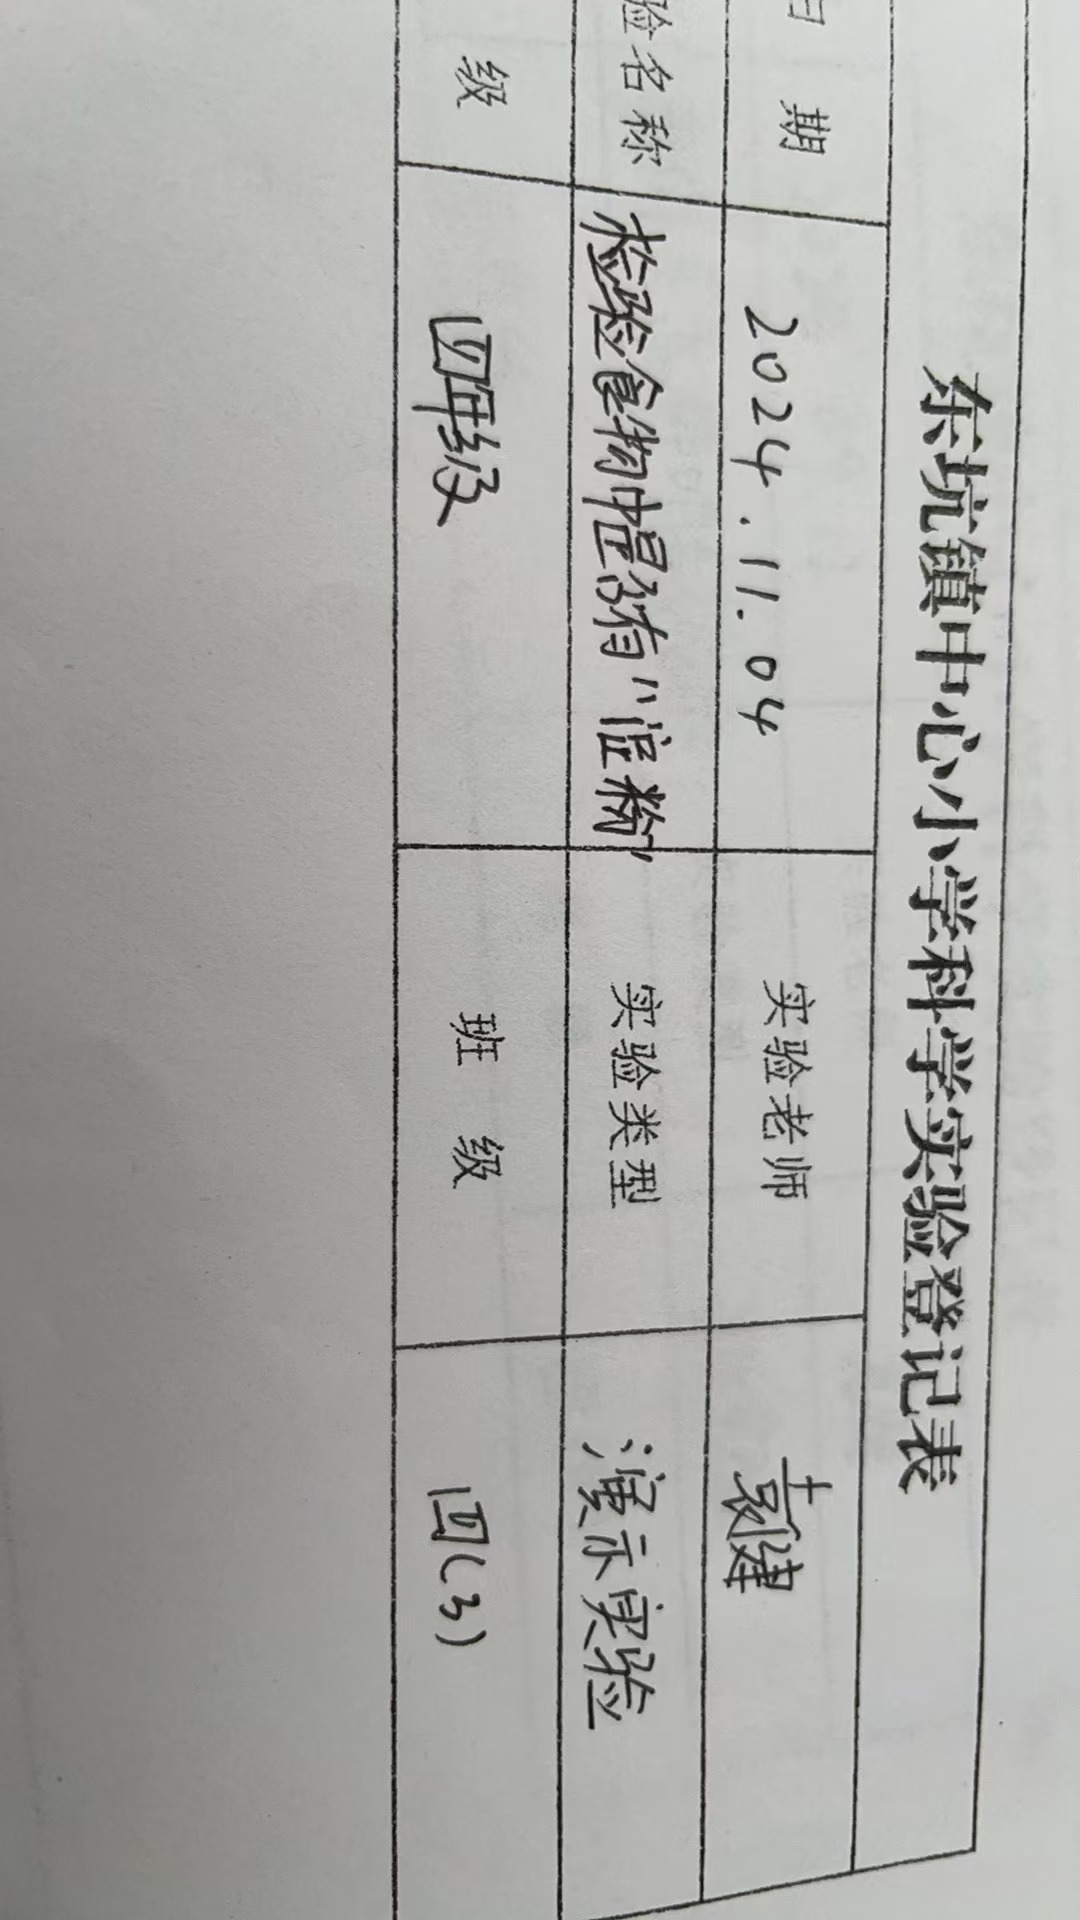 东坑镇中心小学科学实验登记表
日 期 2024.11.04 实验老师 袁建
验名称 检验食物中是否有“淀粉” 实验类型 演示实验
级 四年级 班 级 四(3)